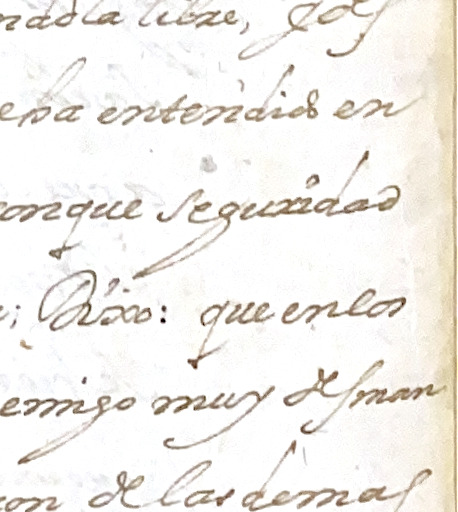 libre,
entendido en
conque seguridad
Dixo: que en los
emigo muy desman
con de las demas